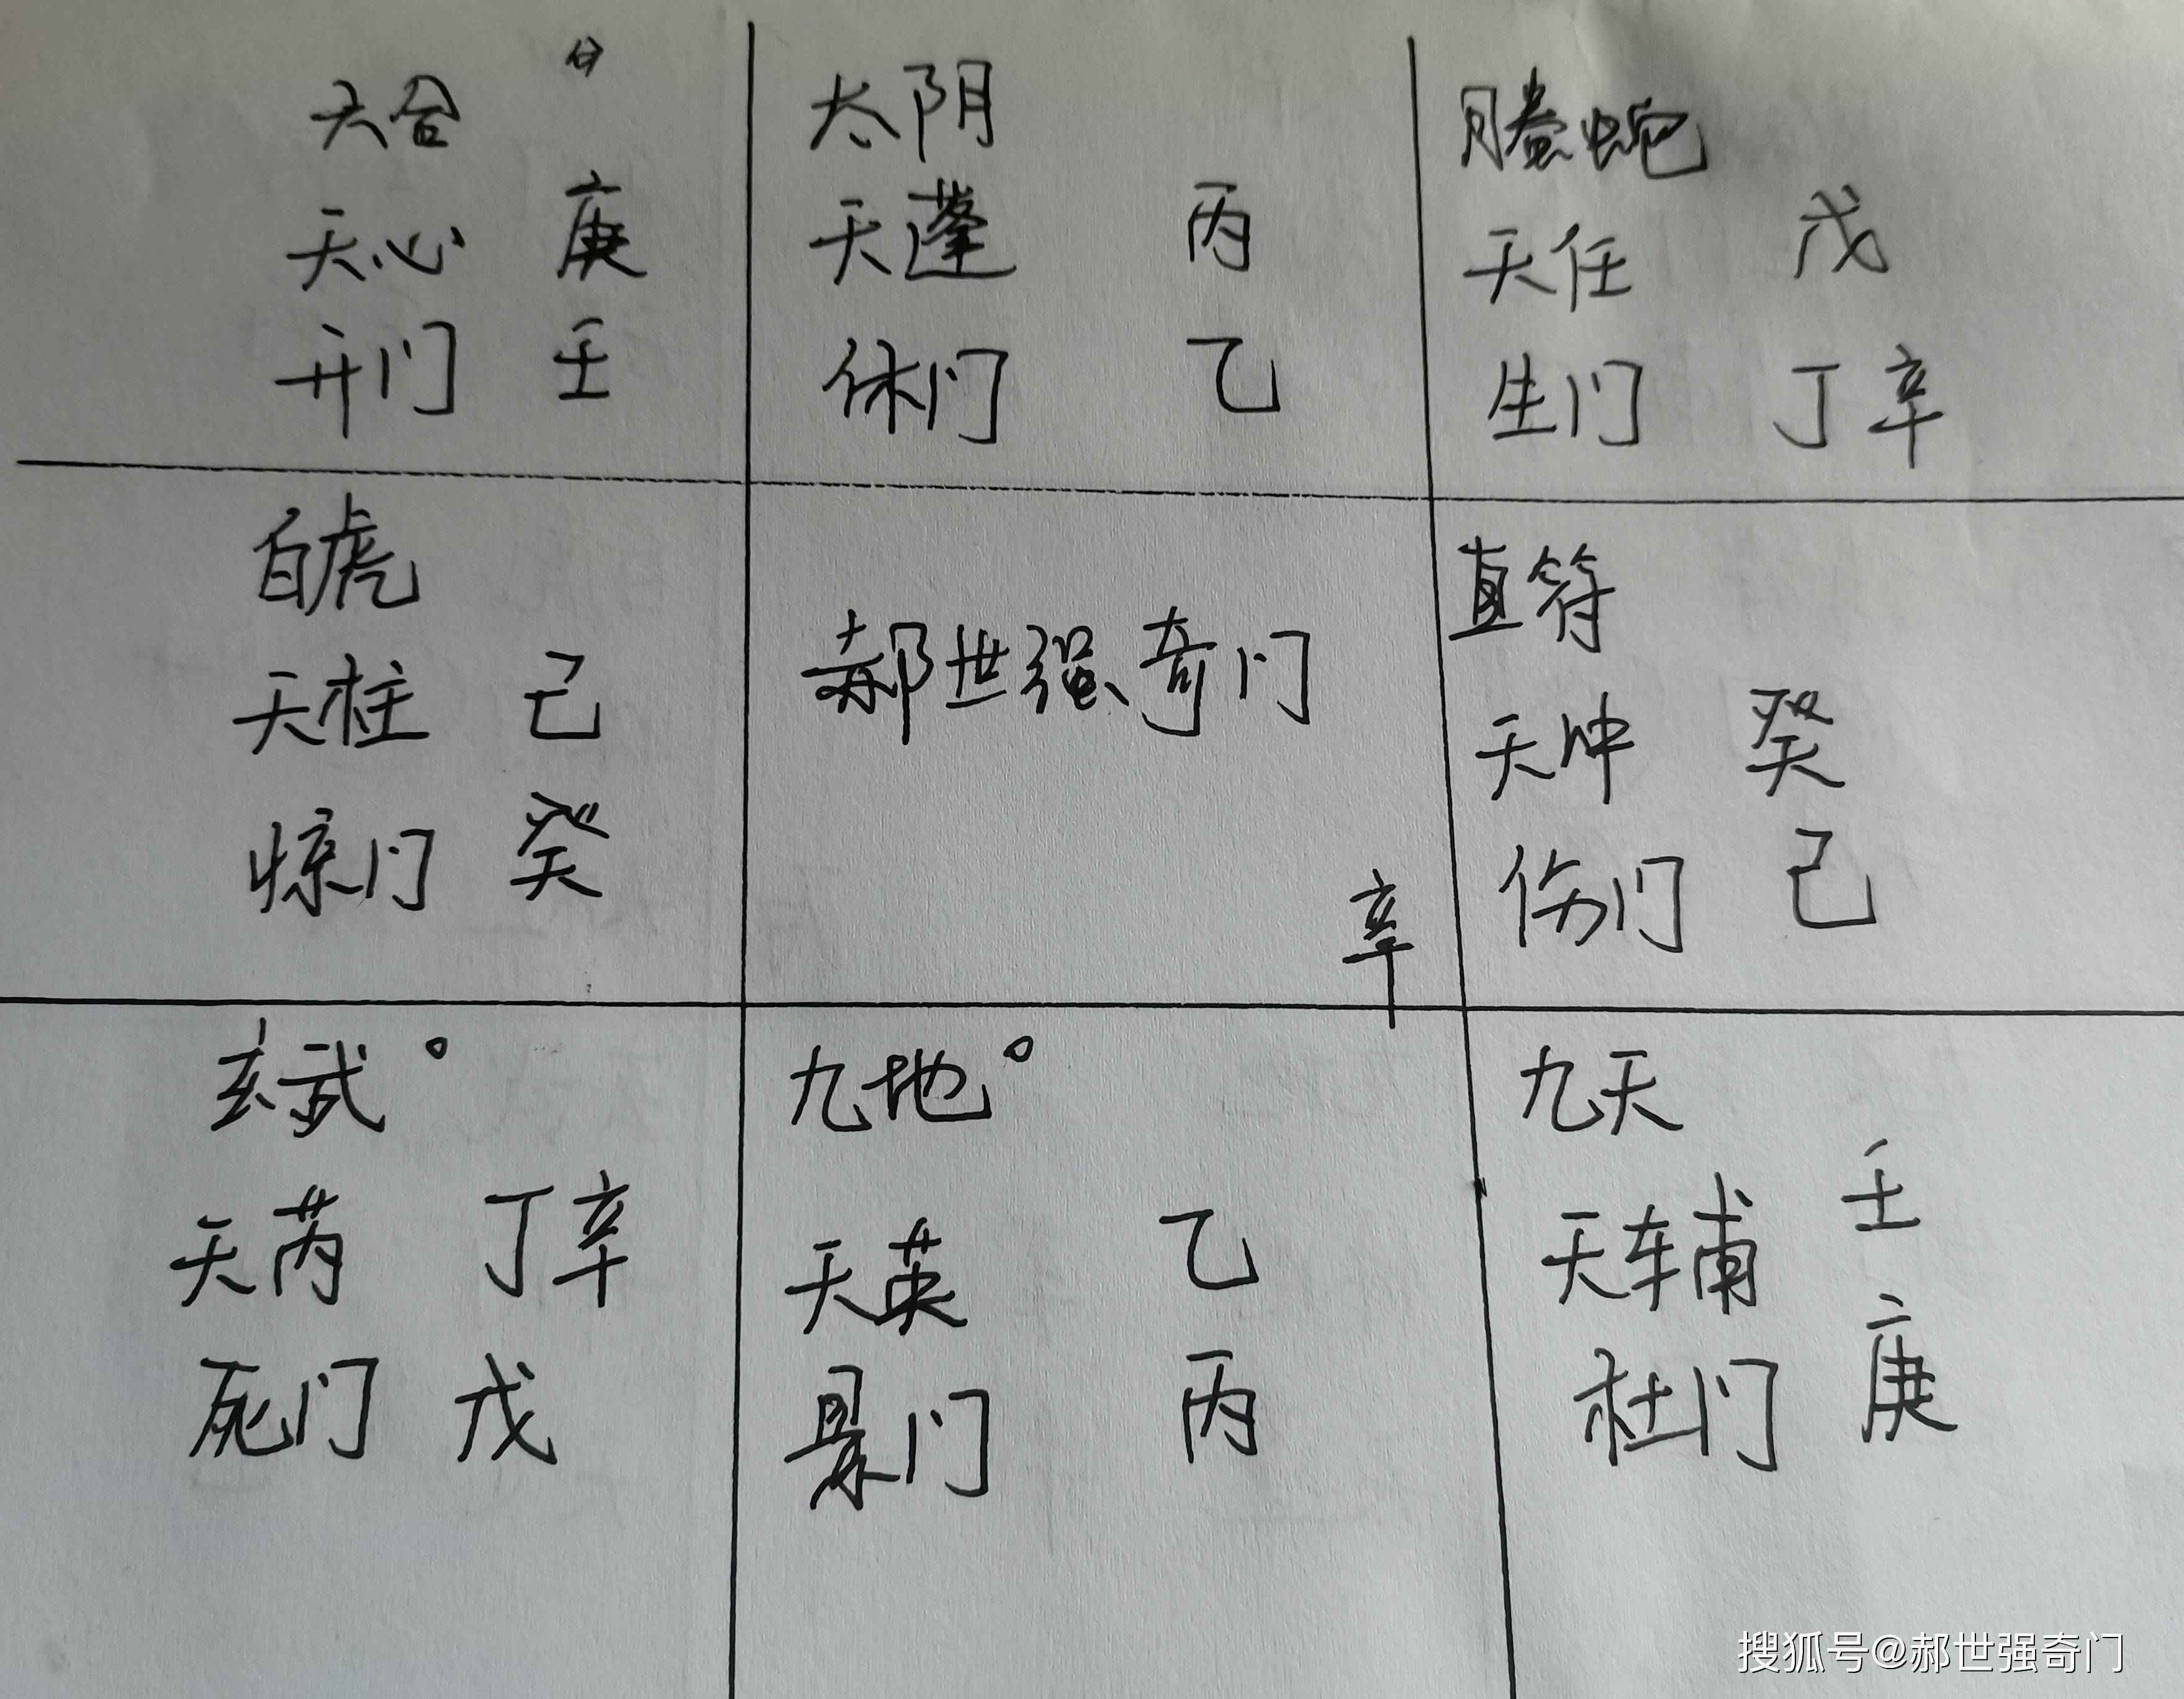 六合
天心 庚
开门 壬
太阴
天蓬 丙
休门 乙
腾蛇
天任 戊
生门 丁辛
白虎
天柱 己
惊门 癸
郝世强奇门
辛
直符
天冲 癸
伤门 己
玄武
天芮 丁辛
死门 戊
九地
天英 乙
景门 丙
九天
天辅 壬
杜门 庚
搜狐号@郝世强奇门